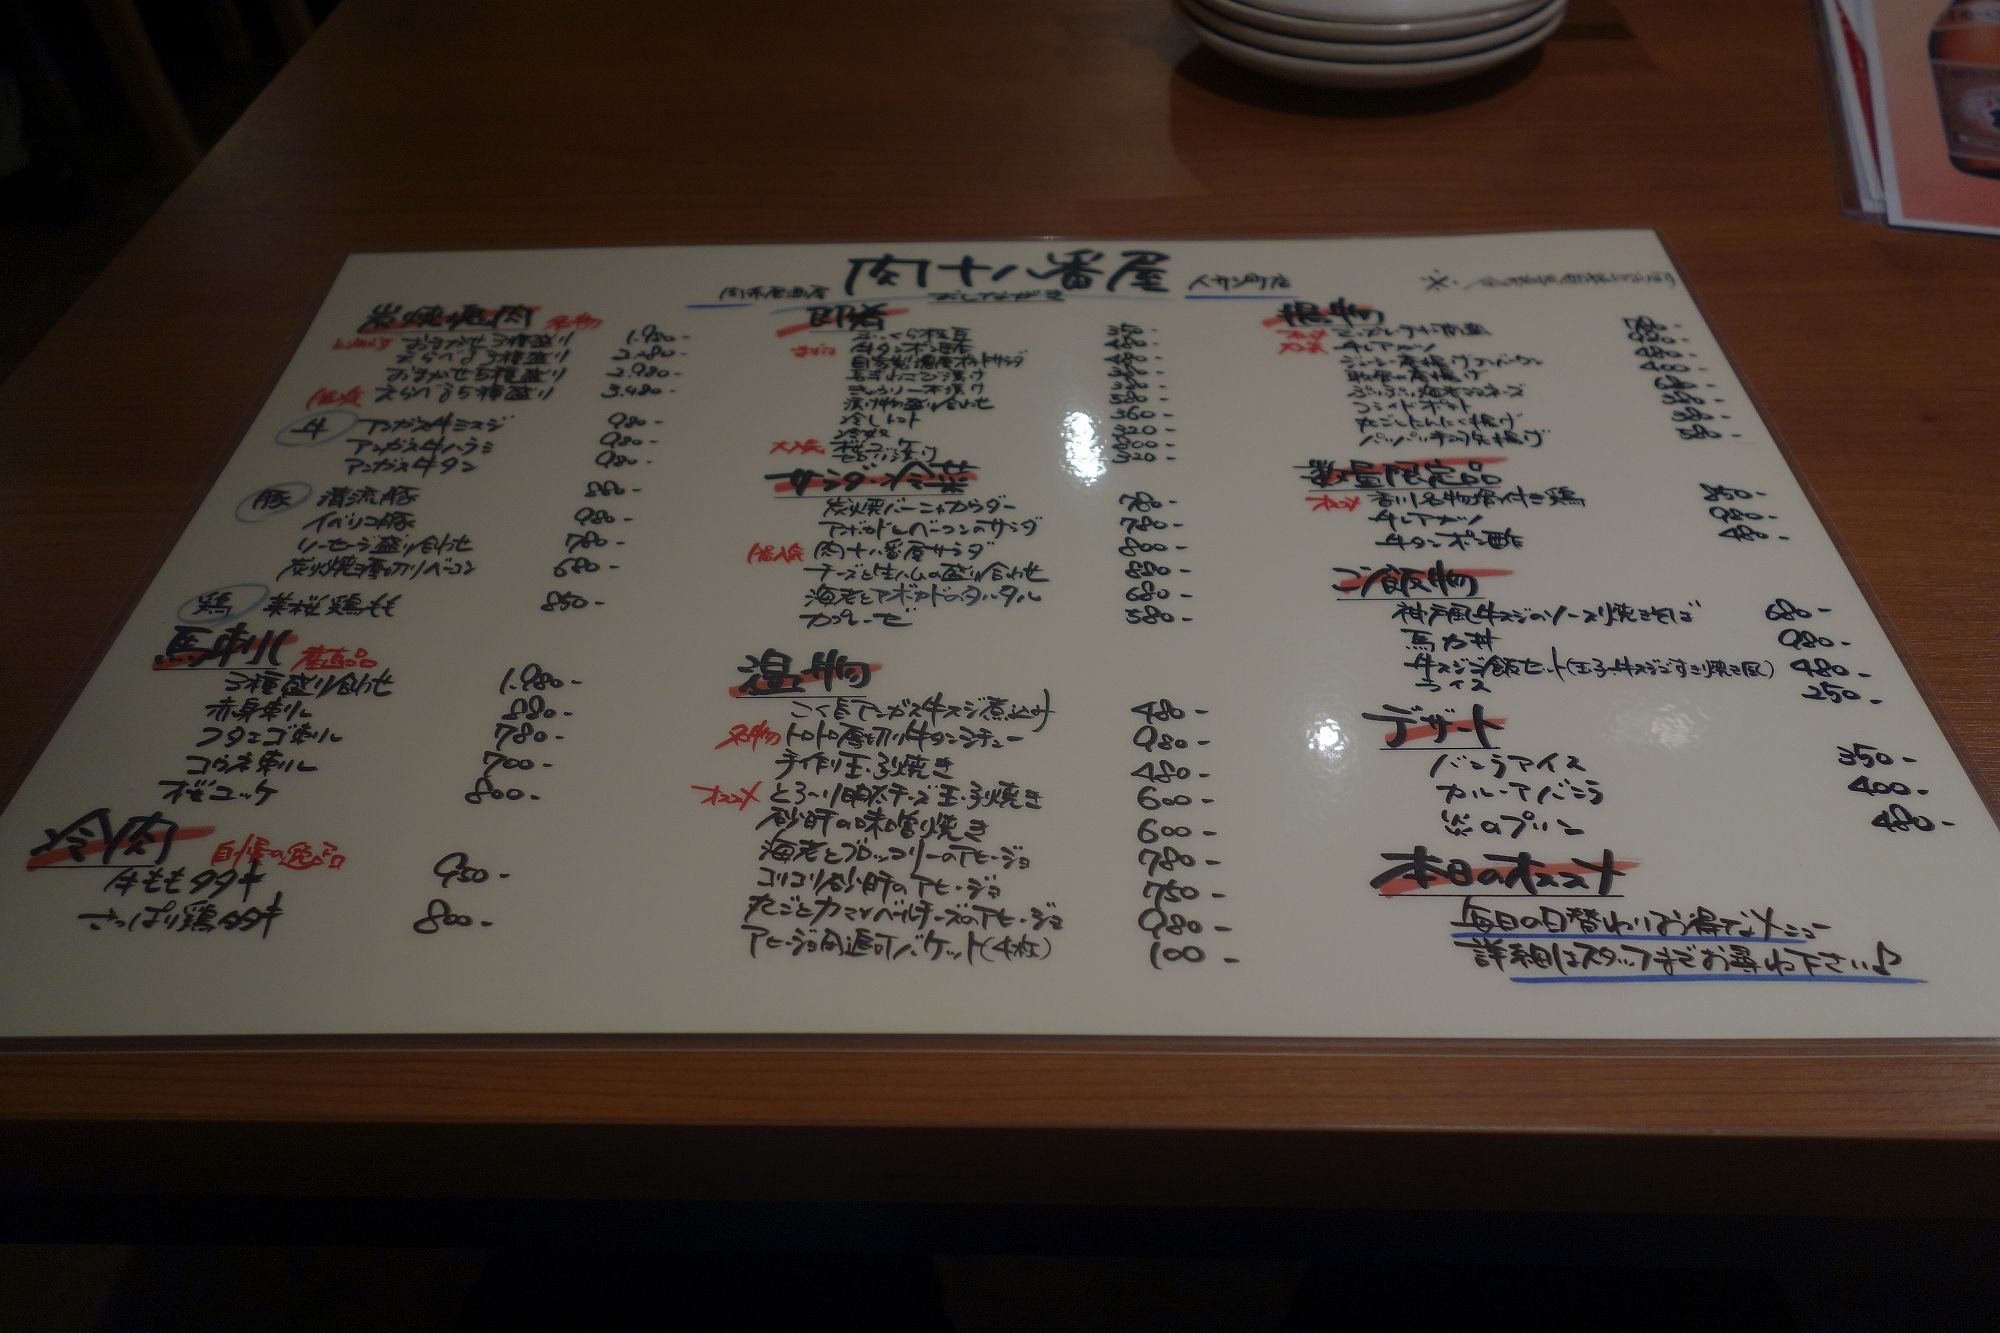 肉十八番屋
肉系居酒屋
おしながき
人形町店
炭焼焼肉 名物
おまかせ3種盛り 1.980-
えらべる3種盛り 2.280-
おまかせ5種盛り 2.980-
えらべる5種盛り 3.480-
牛 アンガス牛ミスジ 980-
アンガス牛ハラミ 980-
アンガス牛タン 980-
豚 清流豚 880-
イベリコ豚 980-
ソーセージ盛り合わせ 780-
炭火焼き厚切りベーコン 680-
鶏 美桜鶏もも 850-
馬刺し 産直品
3種盛り合わせ 1.980-
赤身刺し 880-
フタエゴ刺し 780-
コウネ刺し 700-
桜ユッケ 800-
冷肉 自慢の逸品
牛ももタタキ 950-
さっぱり鶏タタキ 800-
即菜
牛タンポン酢 480-
漬け物盛り合わせ 580-
冷しトマト 360-
冷奴 320-
大人気 桜ユッケ 800-
320-
サラダ・冷菜
炭焼バーニャカウダー 780-
アボカドとベーコンのサラダ 780-
肉十八番屋サラダ 800-
チーズと生ハムの盛り合わせ 880-
海老とアボカドのタルタル 680-
カプレーゼ 580-
温物
こく旨アンガス牛スジ煮込み 480-
名物 トロトロ厚切り牛タンシチュー 980-
手作り玉子焼き 480-
オススメ とろ〜り明太チーズ玉子焼き 600-
砂肝の味噌焼き 600-
海老とブロッコリーのアヒージョ 780-
コリコリ砂肝のアヒージョ 750-
丸ごとカマンベールチーズのアヒージョ 980-
アヒージョ用追加バケット(4枚) 100-
揚物
牛レアカツ 980-
フライドポテト
丸ごとにんにく揚げ
580-
数量限定品
香川名物骨付き鶏 850-
牛レアカツ 980-
牛タンポン酢 480-
ご飯物
神戸風牛スジのソース焼きそば 680-
馬力丼 980-
牛スジご飯セット(玉子・牛スジごすき焼き風) 480-
ライス 250-
デザート
バニラアイス 350-
カルーアバニラ 400-
炎のプリン 480-
本日のオススメ
毎日の日替わりお得なメニュー
詳細はスタッフまでお尋ね下さい♪